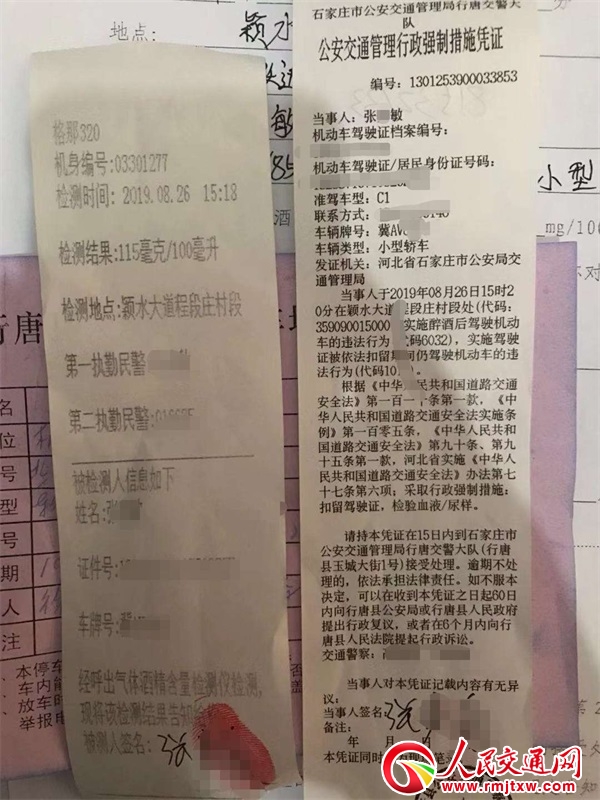 地点:
颍水
格那320
机身编号:03301277
检测时间: 2019.08.26 15:18
检测结果:115毫克/100毫升
检测地点:颍水大道程段庄村段
第一执勤民警:
第二执勤民警:
被检测人信息如下
姓名:张
证件号:
车牌号:冀
经呼出气体酒精含量检测仪检测,
现将该检测结果告知
被测人签名:
石家庄市公安交通管理局行唐交警大
队
公安交通管理行政强制措施凭证
编号:1301253900033853
当事人:张 敏
机动车驾驶证档案编号:
机动车驾驶证/居民身份证号码:
准驾车型: C1
联系方式:
车辆牌号:冀AV
车辆类型:小型轿车
发证机关:河北省石家庄市公安局交
通管理局
当事人于2019年08月26日15时2
0分在颍水大道程段庄村段处(代码:
359090015000 实施醉酒后驾驶机动
车的违法行为 代码6032),实施驾驶
证被依法扣留期间仍驾驶机动车的违
法行为(代码10
根据《中华 民共和国道路交通
安全法》第一百一十条第一款,《中
华人民共和国道路交通安全法实施条
例》第一百零五条,《中华人民共和
国道路交通安全法》第九十条、第九
十五条第一款,河北省实施《中华人
民共和国道路交通安全法》办法第七十
七条第六项;采取行政强制措施:
扣留驾驶证,检验血液/尿样。
请持本凭证在15日内到石家庄市
公安交通管理局行唐交警大队(行唐
县玉城大街1号)接受处理。逾期不处
理的,依法承担法律责任。如不服本
决定,可以在收到本凭证之日起60日
内向行唐县公安局或行唐县人民政府
提出行政复议,或者在6个月内向行
唐县人民法院提起行政诉讼。
交通警察:
当事人对本凭证记载内容有无异
议:
当事人签名:
备注:
年 月
本凭证同时
小型
mg/100
行唐
名
位
号
型
号
期
人
注
本停车
车内
放车时
举报电
人民交通网
www.rmjtxw.com